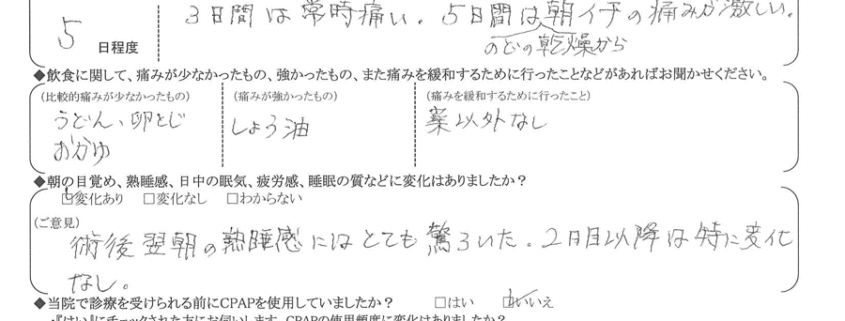 3日間は常時痛い。5日間は朝イチの痛みが激しい。
のどの乾燥から
5 日程度
◆飲食に関して、痛みが少なかったもの、強かったもの、また痛みを緩和するために行ったことなどがあればお聞かせください。
(比較的痛みが少なかったもの) (痛みが強かったもの) (痛みを緩和するために行ったこと)
うどん、卵とじ しょう油 薬以外なし
おかゆ
◆朝の目覚め、熟睡感、日中の眠気、疲労感、睡眠の質などに変化はありましたか?
☑変化あり □変化なし □わからない
(ご意見)
術後翌朝の熟睡感にはとても驚ろいた。2日目以降は特に変化
なし。
◆当院で診療を受けられる前にCPAPを使用していましたか? □はい ☑いいえ
『はい』にチェックされた方にお伺いします。CPAPの使用頻度に変化はありましたか?